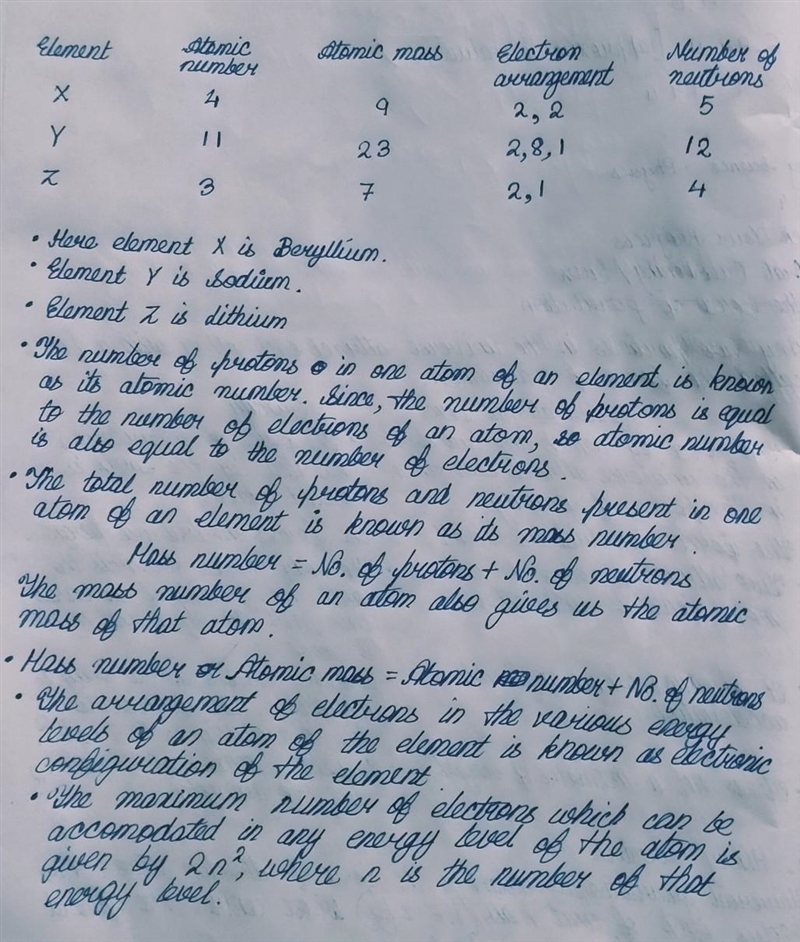 Element Atomic number Atomic mass Electron arrangement Number of neutrons
X 4 9 2, 2 5
Y 11 23 2,8,1 12
Z 3 7 2,1 4
• Here element X is Beryllium.
• Element Y is Sodium.
• Element Z is Lithium
• The number of protons in one atom of an element is known
as its atomic number. Since, the number of protons is equal
to the number of electrons of an atom, so atomic number
is also equal to the number of electrons.
• The total number of protons and neutrons present in one
atom of an element is known as its mass number.
Mass number = No. of protons + No. of neutrons
The mass number of an atom also gives us the atomic
mass of that atom.
• Mass number or Atomic mass = Atomic number + No. of neutrons
• The arrangement of electrons in the various energy
levels of an atom of the element is known as electronic
configuration of the element
• The maximum number of electrons which can be
accomodated in any energy level of the atom is
given by 2n², where n is the number of that
energy level.